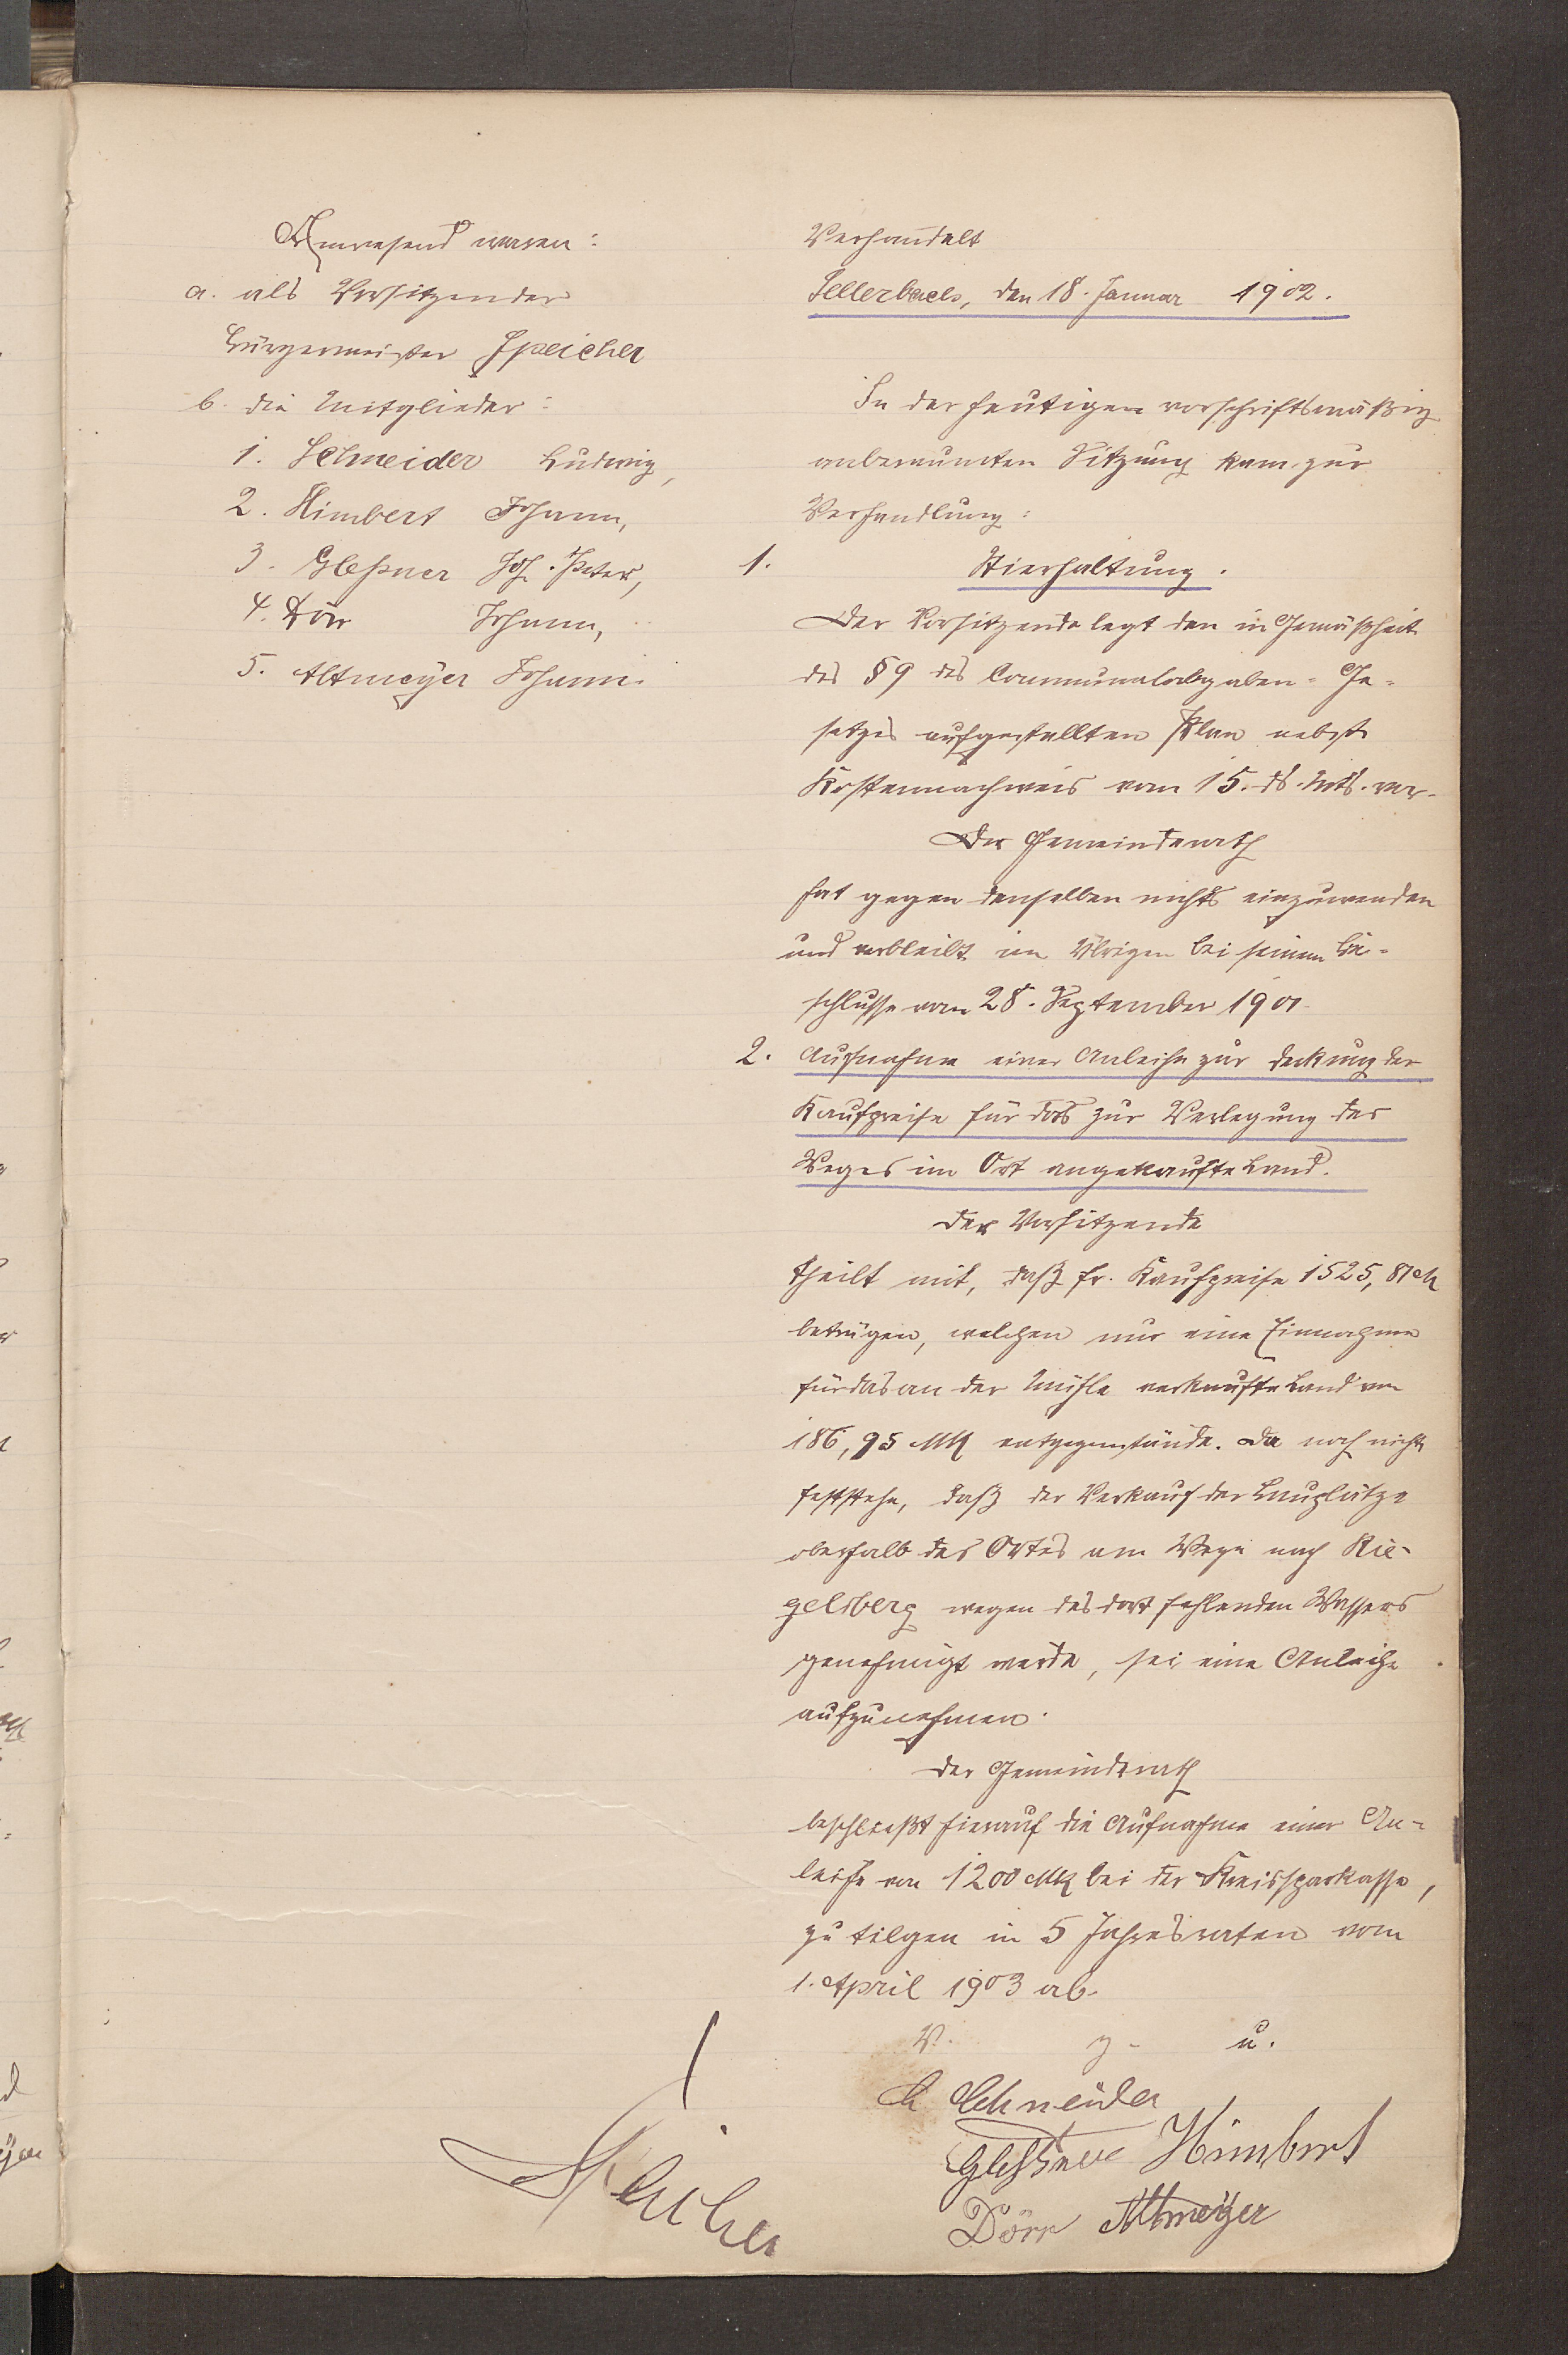 Anwesend waren:
a. als Vorsitzender
Bürgermeister Speicher
b. die Mitglieder:
1. Schneider Ludwig,
2. Himbert Johann,
3. Gleßner Joh. Peter,
4. Dörr Johann,
5. Altmeyer Johann.
Verhandelt
Sellerbach, den 18. Januar 1902.
In der heutigen vorschriftsmäßig
anberaumten Sitzung kam zur
Verhandlung:
1. Stierhaltung.
Der Vorsitzende legt den in Gemäßheit
des § 9 des Communalabgaben-Ge-
setzes aufgestellten Plan nebst
Kostennachweis vom 15. ds. Mts. vor.
Der Gemeinderath
hat gegen denselben nichts einzuwenden
und verbleibt im Übrigen bei seinem Be-
schlusse vom 28. September 1901.
2. Aufnahme einer Anleihe zur Deckung der
Kaufpreise für das zur Verlegung des
Weges im Ort angekaufte Land.
Der Vorsitzende
theilt mit, daß fr. Kaufpreise 1525,81 M
betrügen, welchen nur eine Einnahme
für das an der Mühle verkaufte Land von
186,95 Mk entgegenstände. Da noch nicht
feststehe, daß der Verkauf der Bauplätze
oberhalb des Ortes am Wege nach Rie-
gelsberg wegen des dort fehlenden Wassers
genehmigt werde, sei eine Anleihe
aufzunehmen.
Der Gemeinderath
beschließt hierauf die Aufnahme einer An-
leihe von 1200 Mk bei der Kreissparkasse,
zu tilgen in 5 Jahresraten vom
1. April 1903 ab.
V. g. u.
L Schneider
Glessner Himbert
Dörr Altmeyer
Speicher